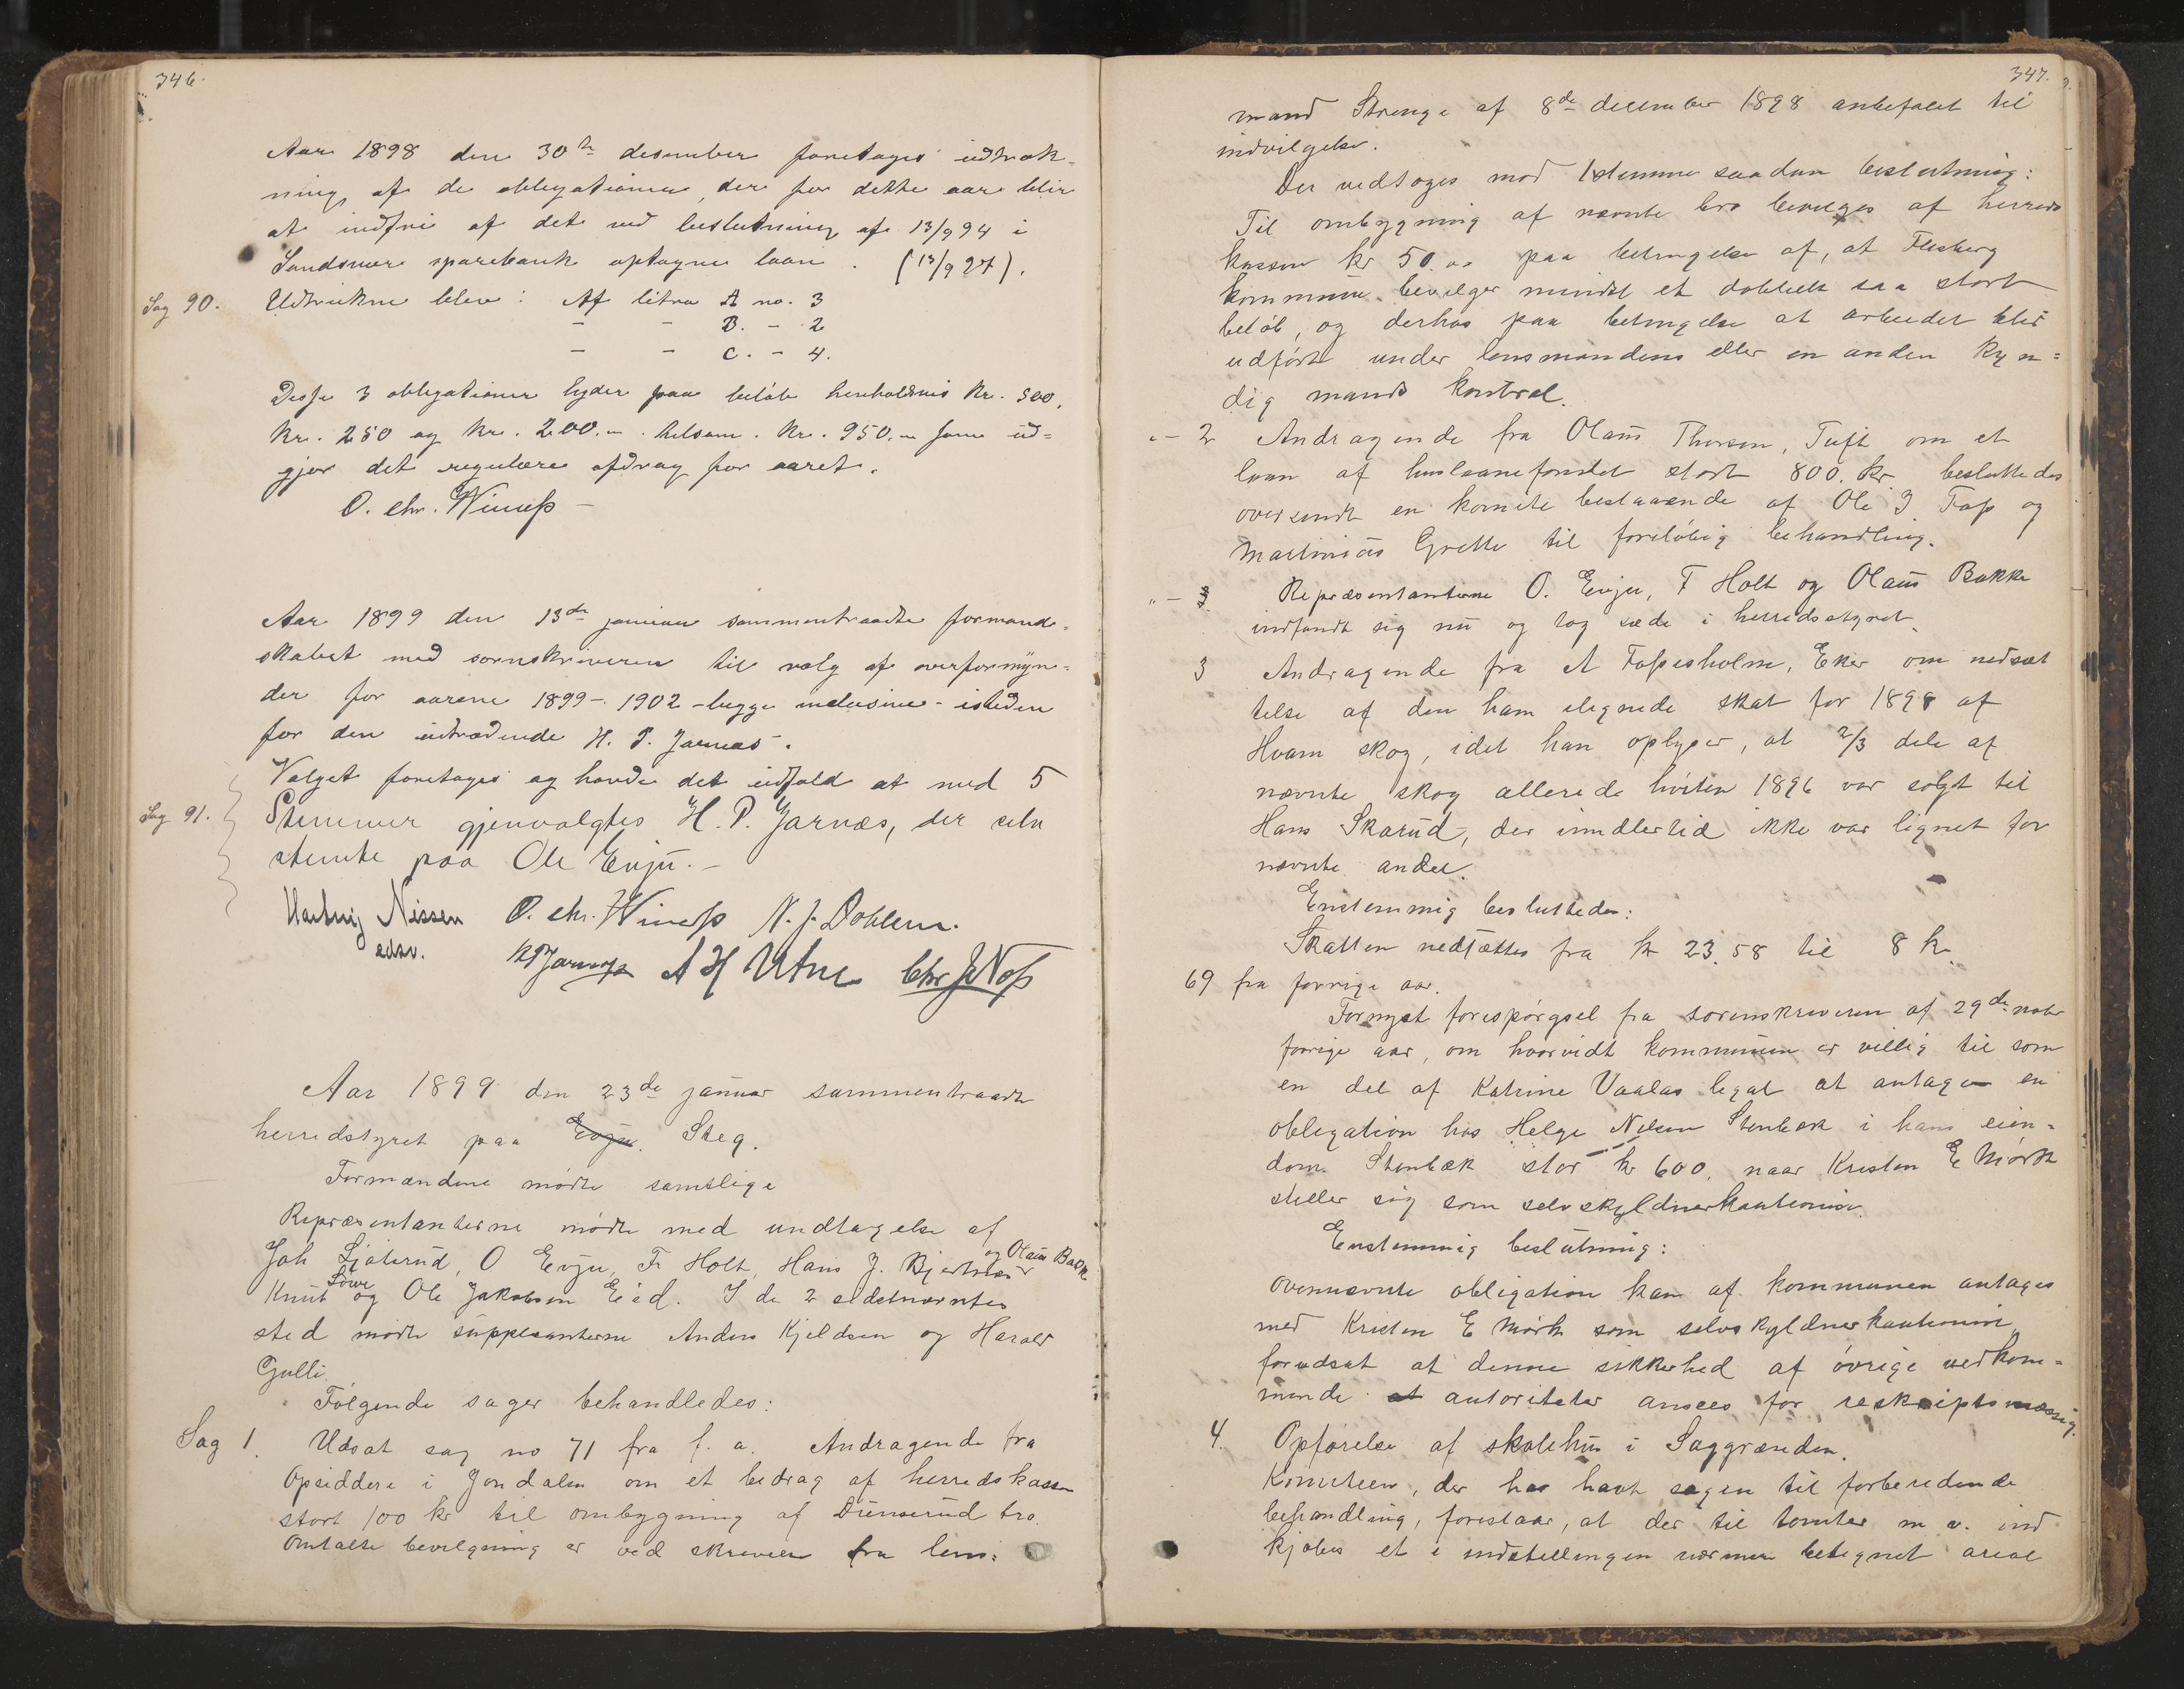 346.
Aar 1898 den 30te desember foretages udtræk-
ning af de obligationer, der for dette aar blir
at indfri af det ved beslutning af 13/9 94 i
Sandsvær sparebank optagne laan. (13/9 97).
Sag 90. Udtrukne blev: Af litra A no. 3
- - B. - 2
- - C. - 4.
Disse 3 obligationer lyder paa beløb henholdsvis Kr. 500,
Kr. 250 og Kr. 200.- tilsam. Kr. 950.- som ud=
gjør det regulære afdrag for aaret.
O. Chr. Winess
Aar 1899 den 13de januar sammentraadte formand-
skabet med sorenskriveren til valg af overformyn=
der for aarene 1899-1902 - begge inclusive - isteden
for den udtrædende H. P. Jarnæs.
Valget foretoges og havde det udfald at med 5
Sag 91. Stemmer gjenvalgtes H. P. Jarnæs, der selv
stemte paa Ole Evju.-
Hartvig Nissen O. Chr. Winess N. J. Dahlen.
edsv. HPJarnæs A H Utne Chr J Noss
Aar 1899 den 23de januar sammentraadte
herredstyret paa Evju. Steg.
Formændene mødte samtlige
Repræsentanterne mødte med undtagelse af
Joh Ljøterud, O Evju, Fr Holt, Hans J. Bjertnæs og Olaus Bakke
Knut Løwe og Ole Jakobsen Eid. I de 2 sidstnævntes
sted mødte suppleanterne Anders Kjeldsen og Harald
Gulli.
Følgende sager behandledes:
Sag 1. Udsat sag no 71 fra f. a. Andragende fra
Opsiddere i Jondalen om et bidrag af herredskassen
stort 100 kr til ombygning af Dunserud bro.
Omtalte bevilgning er ved skrivelse fra lens=
347.
mand Strenge af 8de december 1898 anbefalet til
indvilgelse.
Der vedtoges mod 1 stemme saadan beslutning:
Til ombygning af nævnte bro bevilges af herreds
kassen kr 50.00 paa betingelse af, at Flesberg
kommune bevilger mindst et dobbelt saa stort
beløb, og derhos paa betingelse at arbeidet blir
udført under lensmandens eller en anden kyn=
dig mands kontrol.
"- 2 Andragende fra Olaus Thorsen, Tuft om et
laan af huslaanefondet stort 800. kr besluttedes
oversendt en komite bestaaende af Ole J Foss og
Martinius Grette til foreløbig behandling.
"- 3. Repræsentanterne O. Evju, F Holt og Olaus Bakke
indfandt sig nu og tog sæde i herredsstyret.
3 Andragende fra A Fossesholm, Eker om nedsæt
telse af den ham ilignede skat for 1898 af
Hvam skog, idet han oplyser, at 2/3 dele af
nævnte skog allerede høsten 1896 var solgt til
Hans Skarud, der imidlertid ikke var lignet for
nævnte andel.
Enstemmig besluttedes:
Skatten nedsættes fra kr 23.58 til 8 kr.
69 fra forrige aar.
Fornyet forespørgsel fra sorenskriveren af 29de novbr
forrige aar, om hvorvidt kommunen er villig til som
en del af Katrine Vaalas legat at antage en
obligation hos Helge Nilsen Stenbæk i hans eien=
dom Stenbæk stor kr 600, naar Kristen E Mørk
stiller sig som selvskyldnerkautionist.
Enstemmig beslutning:
Ovennævnte obligation kan af kommunen antages
med Kristen E Mørk som selvskyldnerkautionist,
forudsat at denne sikkerhed af øvrige vedkom=
mende at autoriteter ansees for reskriptsmæssig.
4. Opførelse af skolehus i Saggrænden.
Komiteen, der har havt sagen til forberedende
behandling, foreslaar, at der til tomter m v. ind
kjøbes et i indstillingen nærmere betegnet areal